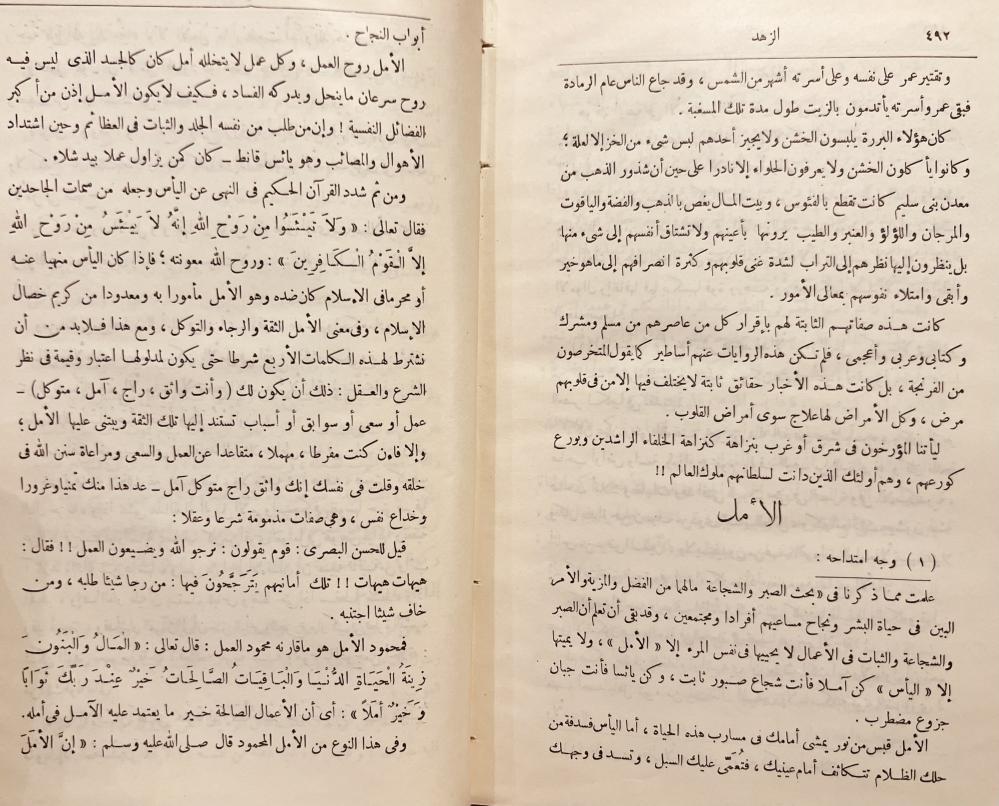 ٤٩٢
الزهد
وتقتير عمر على نفسه وعلى أسرته أشهر من الشمس ، وقد جاع الناس عام الرمادة
فبقى عمر وأسرته يأتدمون بالزيت طول مدة تلك المسغبة .
كان هؤلاء البررة يلبسون الخشن ولا يجيز أحدهم لبس شىء من الخز إلا لعلة ؛
وكانوا يأكلون الخشن ولا يعرفون الحلواء إلا نادرا على حين أن شذور الذهب من
معدن بنى سليم كانت تقطع بالفئوس ، وبيت المال يغص بالذهب والفضة والياقوت
والمرجان واللؤلؤ والعنبر والطيب يرونها بأعينهم ولا تشتاق أنفسهم إلى شىء منها
بل ينظرون إليها نظرهم إلى التراب لشدة غنى قلوبهم وكثرة انصرافهم إلى ما هو خير
وأبقى وامتلاء نفوسهم بمعالى الأمور .
كانت هذه صفاتهم الثابتة لهم بإقرار كل من عاصرهم من مسلم ومشرك
وكتابى وعربى وأعجمى ، فلم تكن هذه الروايات عنهم أساطير كما يقول المتخرصون
من الفرنجة ، بل كانت هذه الأخبار حقائق ثابتة لا يختلف فيها إلا من فى قلوبهم
مرض ، وكل الأمراض لها علاج سوى أمراض القلوب .
ليأتنا المؤرخون فى شرق أو غرب بنزاهة كنزاهة الخلفاء الراشدين وبورع
كورعهم ، وهم أولئك الذين دانت لسلطانهم ملوك العالم !!
الأمل
( ١ ) وجه امتداحه :
علمت مما ذكرنا فى « بحث الصبر والشجاعة مالهما من الفضل والمزية والأمر
البين فى حياة البشر ونجاح مساعيهم أفرادا ومجتمعين ، وقد بقى أن تعلم أن الصبر
والشجاعة والثبات فى الأعمال لا يحييها فى نفس المرء إلا « الأمل » ، ولا يميتها
إلا « اليأس » كن آملا فأنت شجاع صبور ثابت ، وكن يائسا فأنت جبان
جزوع مضطرب .
الأمل قبس من نور يمشى أمامك فى مسارب هذه الحياة ، أما اليأس فسدفة من
حلك الظلام تتكاثف أمام عينيك ، فتُعَمّى عليك السبل ، وتسد فى وجهك
أبواب النجاح .
الأمل روح العمل ، وكل عمل لا يتخلله أمل كان كالجسد الذى ليس فيه
روح سرعان ما ينحل ويدركه الفساد ، فكيف لا يكون الأمل إذن من أكبر
الفضائل النفسية ! وإن من طلب من نفسه الجلد والثبات فى العظائم وحين اشتداد
الأهوال والمصائب وهو يائس قانط ــ كان كمن يزاول عملا بيد شلاء .
ومن ثم شدد القرآن الحكيم فى النهى عن اليأس وجعله من سمات الجاحدين
فقال تعالى : « وَلاَ تَيْئَسُوا مِنْ رَوْحِ اللهِ إِنَّهُ لاَ يَيْئَسُ مِنْ رَوْحِ اللهِ
إِلاَّ الْقَوْمُ الْكَافِرِينَ » : وروح الله معونته ؛ فإذا كان اليأس منهيا عنه
أو محرما فى الإسلام كان ضده وهو الأمل مأمورا به ومعدودا من كريم خصال
الإسلام ، وفى معنى الأمل الثقة والرجاء والتوكل ، ومع هذا فلابد من أن
نشترط لهذه الكلمات الأربع شرطا حتى يكون لمدلولها اعتبار وقيمة فى نظر
الشرع والعقل : ذلك أن يكون لك ( وأنت واثق ، راج ، آمل ، متوكل ) ــ
عمل أو سعى أو سوابق أو أسباب تستند إليها تلك الثقة ويبتنى عليها الأمل ؛
وإلا فإن كنت مفرطا ، مهملا ، متقاعدا عن العمل والسعى ومراعاة سنن الله فى
خلقه وقلت فى نفسك إنك واثق راج متوكل آمل ــ عد هذا منك تمنيا وغرورا
وخداع نفس ، وهى صفات مذمومة شرعا وعقلا :
قيل للحسن البصرى : قوم يقولون : نرجو الله ويضيعون العمل !! فقال :
هيهات هيهات !! تلك أمانيهم يَتَرَجَّحُونَ فيها : من رجا شيئا طلبه ، ومن
خاف شيئا اجتنبه .
فمحمود الأمل هو ما قارنه محمود العمل : قال تعالى : « الْمَالُ وَالْبَنُونَ
زِينَةُ الْحَيَاةِ الدُّنْيَا وَالْبَاقِيَاتُ الصَّالِحَاتُ خَيْرٌ عِنْدَ رَبِّكَ ثَوَابًا
وَخَيْرٌ أَمَلاً » : أى أن الأعمال الصالحة خير ما يعتمد عليه الآمل فى أمله.
وفى هذا النوع من الأمل المحمود قال صلى الله عليه وسلم : « إِنَّ الأَمَلَ